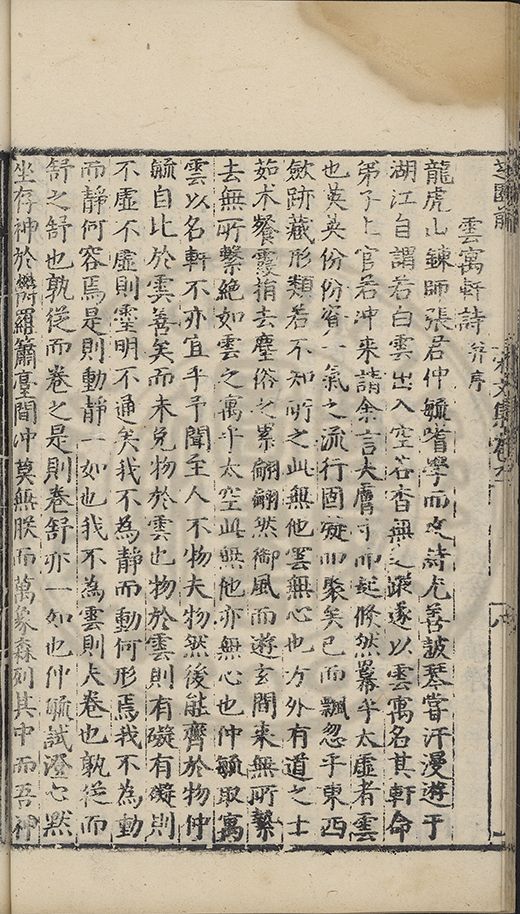 芝園前
宋文集卷之
雲寓軒詩并序
龍虎山錬師張君仲毓嗜學而攻詩尤善鼓琴嘗汗漫遊于
湖江自謂若白雲出入空若杳無之蹤遂以雲寓名其軒命
弟子上官若冲来請余言夫膚寸而起倐然羃乎太虛者雲
也英英份份資一氣之流行固凝而聚矣已而飄忽乎東西
斂跡藏形類若不知所之此無他雲無心也方外有道之士
茹木餐霞捐去塵俗之累翩翩然御風而遊玄間来無所繫
去無所繫絶如雲之寓乎太空此無他亦無心也仲毓取寓
雲以名軒不亦宜乎予聞至人不物夫物然後能齊於物仲
毓自比於雲善矣而未免物於雲也物於雲則有礙有礙則
不虛不虛則靈明不通矣我不為靜而動何形焉我不為動
而靜何容焉是則動靜一如也我不為雲則夫卷也孰從而
舒之舒也孰從而卷之是則卷舒亦一如也仲毓試澄心默
坐存神於欝羅蕭臺間冲莫無朕而萬象森列其中而吾神